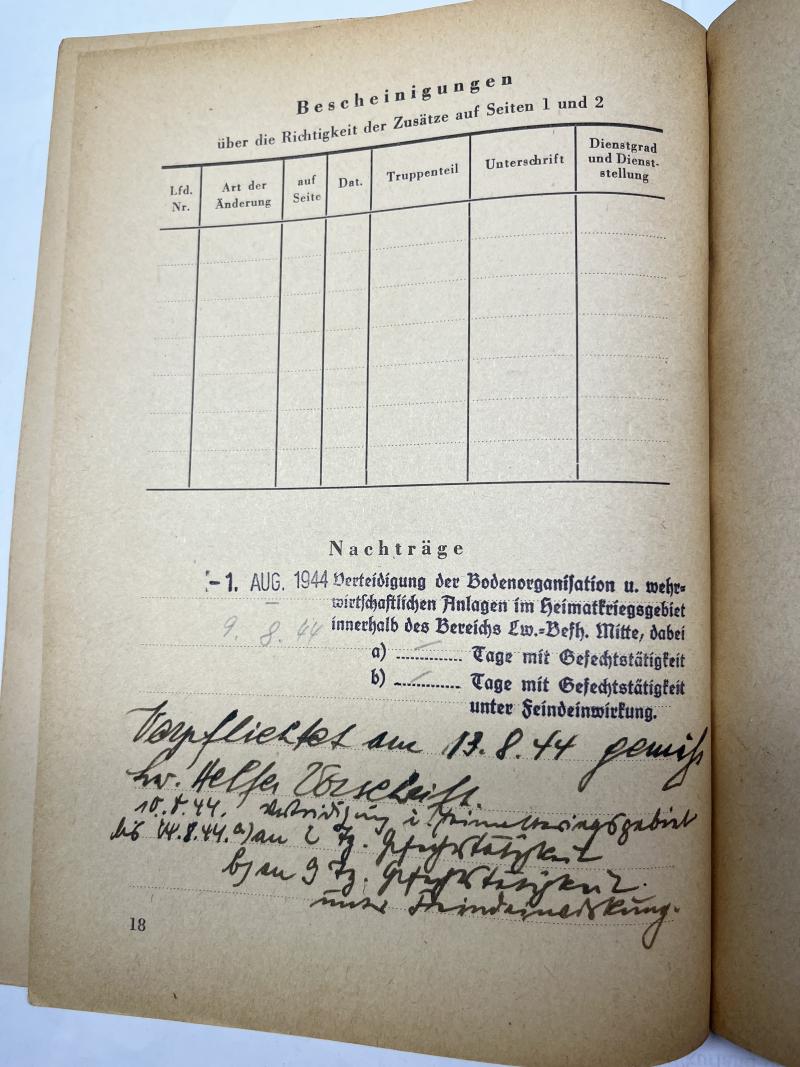 Bescheinigungen
über die Richtigkeit der Zusätze auf Seiten 1 und 2
Lfd. Nr.
Art der Änderung
auf Seite
Dat.
Truppenteil
Unterschrift
Dienstgrad und Dienst-stellung
Nachträge
-1. AUG. 1944 Verteidigung der Bodenorganisation u. wehr-
wirtschaftlichen Anlagen im Heimatkriegsgebiet
9. 8. 44 innerhalb des Bereichs Lw.-Befh. Mitte, dabei
a) ............ Tage mit Gefechtstätigkeit
b) ............ Tage mit Gefechtstätigkeit
unter Feindeinwirkung.
Verpflichtet am 13.8.44 gemäß
Lw. Helfer Vorschrift.
10.8.44. Verteidigung i. Heimatkriegsgebiet
bis 14.8.44. a) an 2 Tg. Gefechtstätigkeit
b) an 9 Tg. Gefechtstätigkeit.
unter Feindeinwirkung.
18